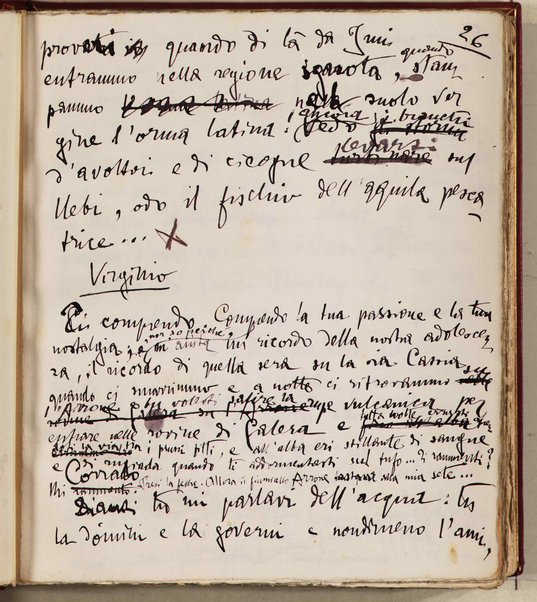 26
provati quando di là da Imi quando
entrammo nella regione ignota, stam
pammo nel suolo ver
gine l'orma latina: ancora
Vedo i bianchi
d'avoltoi e di cicogne levarsi sul
Uebi, odo il fischio dell'aquila pesca
trice...
Virginio
Ti comprendo. Comprendo la tua passione e la tua
nostalgia, non so perché, un ricordo della nostra adolescen
za, il ricordo di quella sera su la via Cassia
quando ci smarrimmo e a notte ci ritrovammo
Arrone volesti salire la rupe vulcanica per
entrare nelle rovine di Galera e tutta notte
i pruni fitti, e all'alba eri stillante di sangue
e di rugiada quando ti addormentasti sul tufo... Ti rammenti?
Corrado
Mi rammento. Avevi la febbre. Allora il Arrone alla mia sete...
tu mi parlavi dell'acqua: tu
la dòmini e la governi e nondimeno l'ami,